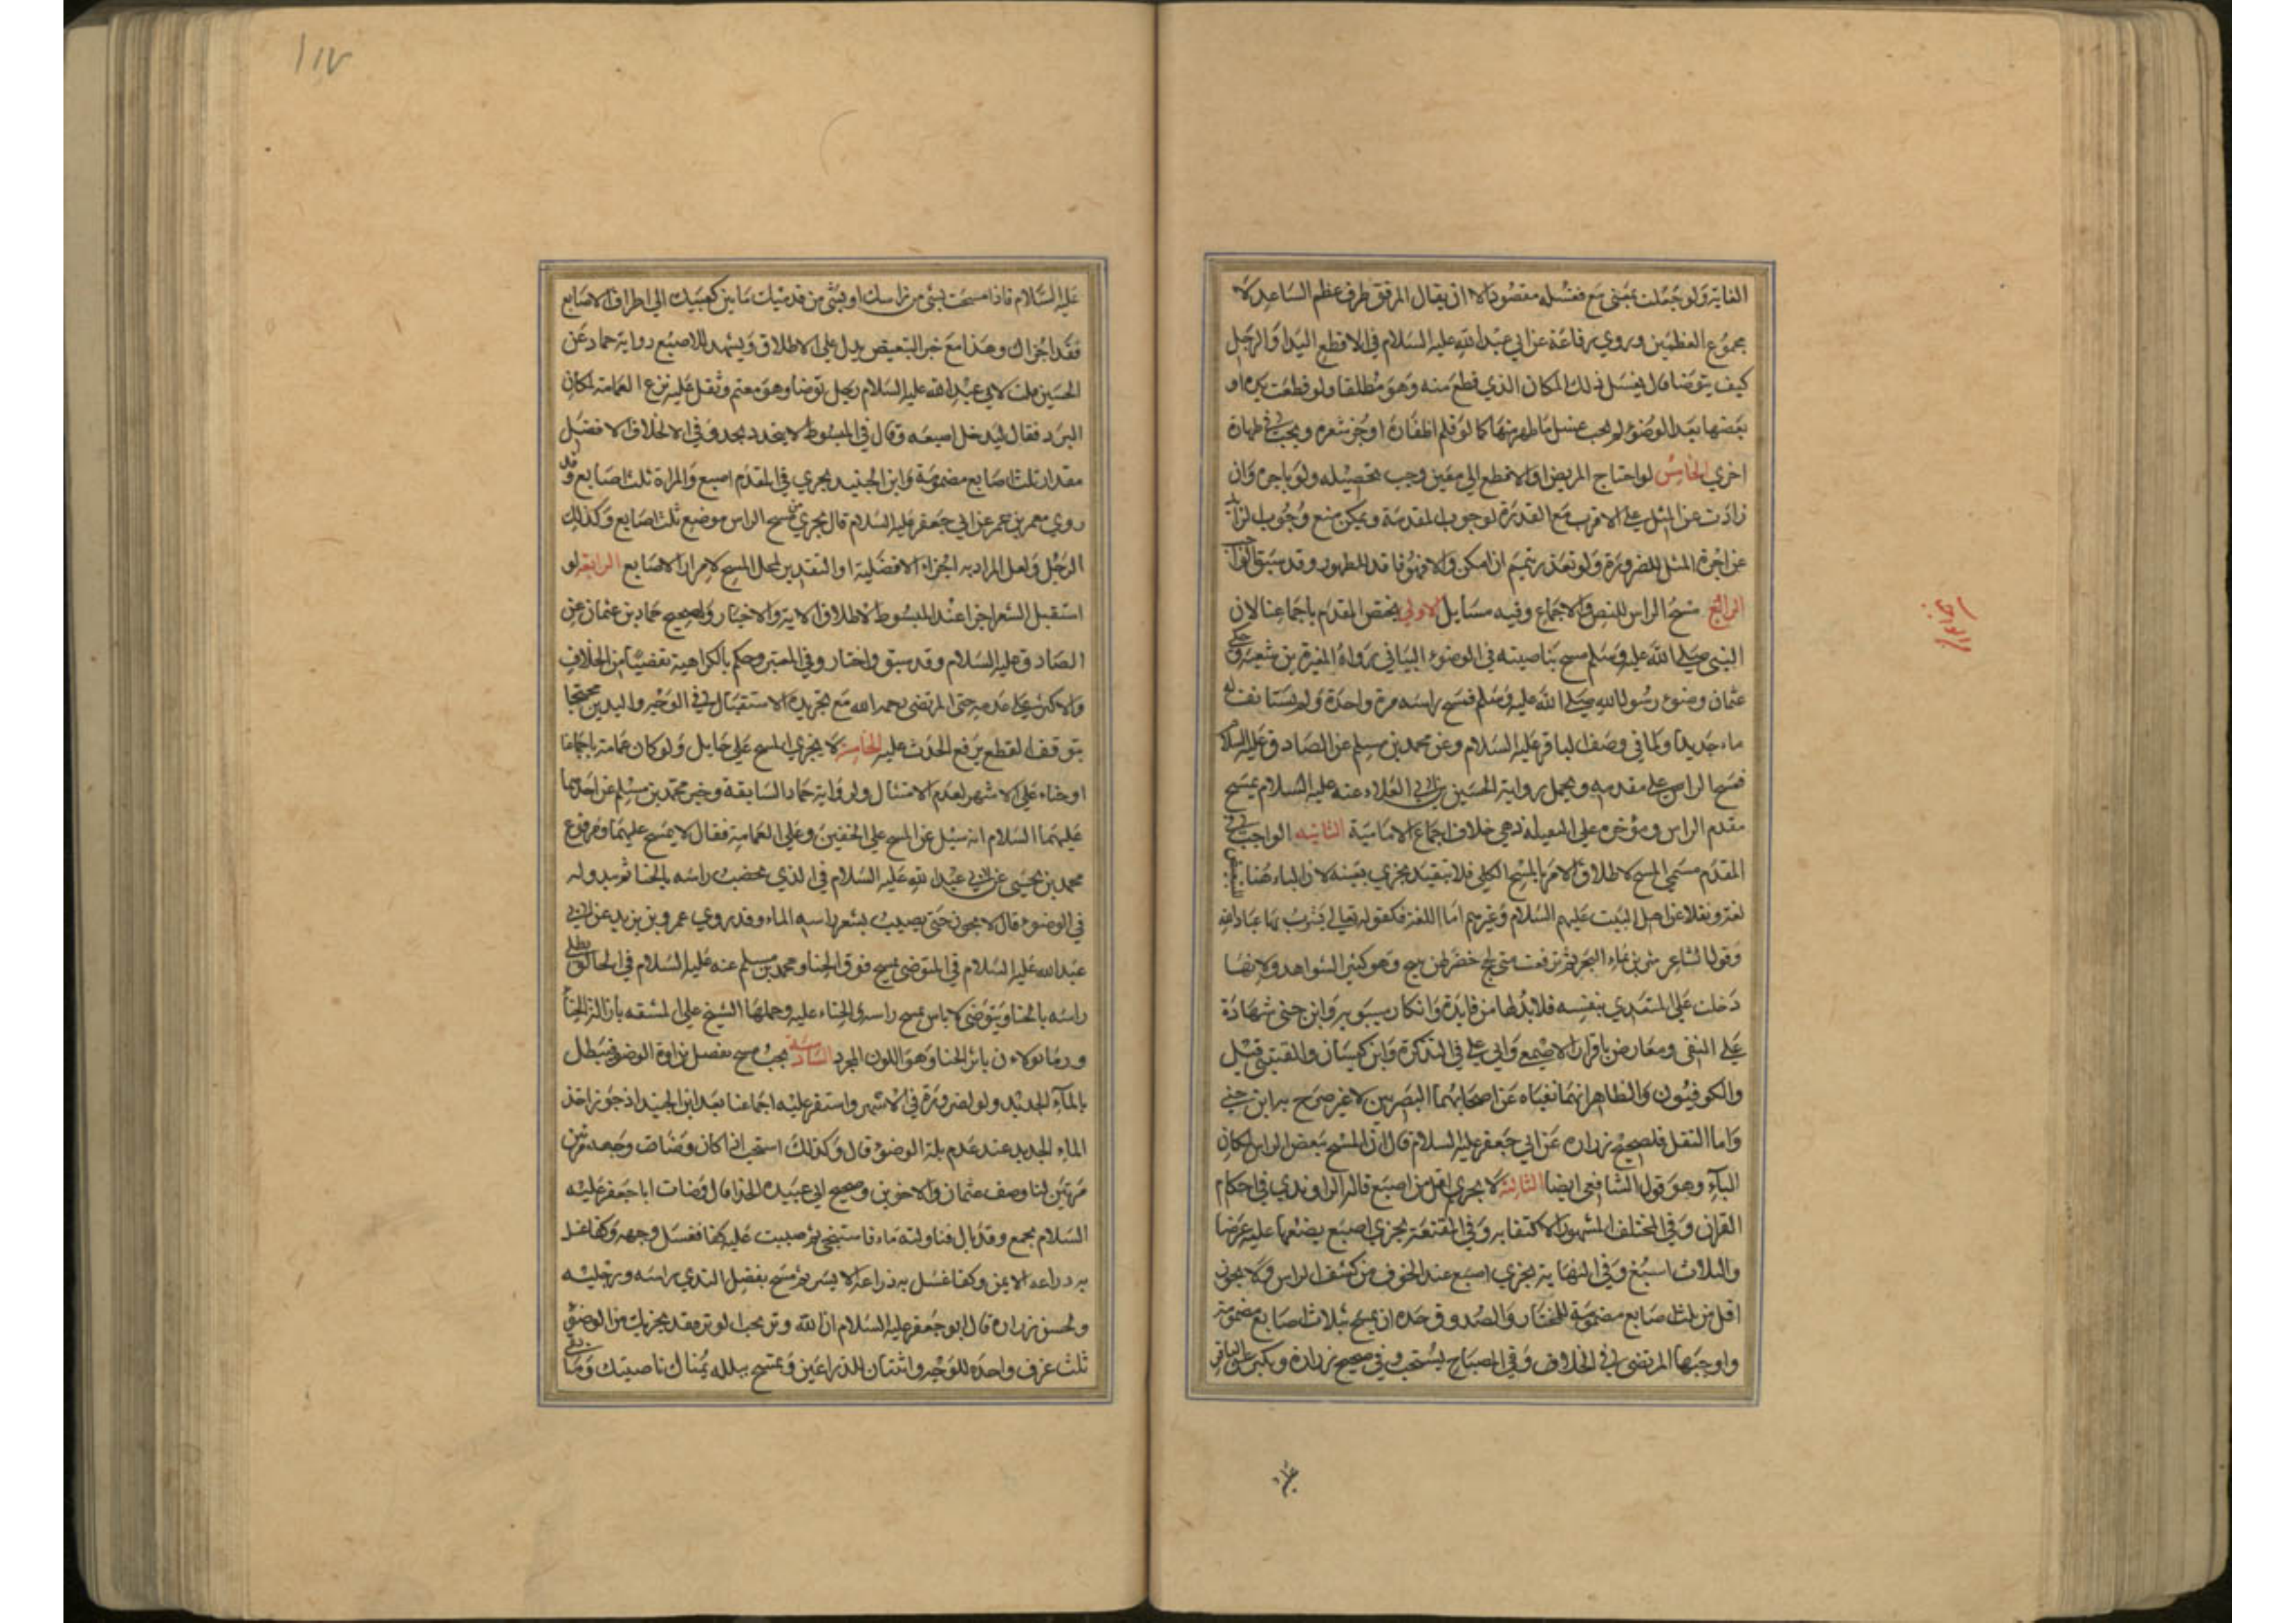 الغاية ولو جعلت بمعنى مع فغسله مقصود الا ان يقال المرفق طرف عظم الساعد لا
مجموع العظمين وروي رفاعة عن ابي عبد الله عليه السلام في الاقطع اليد والرجل
كيف يتوضا قال يغسل ذلك المكان الذي قطع منه وهو مطلقا ولو قطعت يده او
بعضها بعد الوضوء لم يجب غسل ما ظهر منها كما لو قلم اظفاره او جز شعره ويجب في طهارة
اخري الخامس لو احتاج المريض او الاقطع الي معين وجب تحصيله ولو باجرة وان
زادت عن المثل علي الاقرب مع القدرة لوجوب المقدمة ويمكن منع وجوب الزايد
عن اجرة المثل للضرورة ولو تعذر يتمم ان امكن والا فهو فاقد للطهور وقد سبق
الرابع مسح الراس للنص والاجماع وفيه مسايل الاولي يختص المقدم باجماعنا لان
النبي صلي الله عليه وسلم مسح بناصيته في الوضوء البياني رواه المغيرة بن شعبة وحكي
عثمان وضوء رسول الله صلي الله عليه وسلم فمسح راسه مرة واحدة ولم يستانف له
ماء جديدا ولما في وصف الباقر عليه السلام وعن محمد بن مسلم عن الصادق عليه السلام
فمسح الراس علي مقدمه ويحمل رواية الحسين بن ابي العلاء عنه عليه السلام يمسح
مقدم الراس ومؤخره علي التقية فهي خلاف اجماع الامامية الثانية الواجب في
المقدم مسمي المسح لاطلاق الامر بالمسح الكلي فلا يتقيد بجزي بعينه لان الباء هنا
لغة ونقلا عن اهل البيت عليهم السلام وغيرهم اما اللغة فكقوله تعالي يشرب بها عباد الله
وقول الشاعر شربن بماء البحر ثم ترفعت متي لجج خضر لهن نئيج وهو كثير الشواهد ولانها
دخلت علي المتعدي بنفسه فلا بد لها من فايدة وانكار سيبويه وابن جني شهادة
علي النفي ومعارض باقرار الاصمعي وابي علي في التذكرة وابن كيسان والقتيبي قيل
والكوفيون والظاهر انهما نفياه عن اصحابهما البصريين لا غير صرح به ابن جني
واما النقل فلصحيح زراره عن ابي جعفر عليه السلام قال ان المسح ببعض الراس لمكان
الباء وهو قول الشافعي ايضا الثالثة لا يجزي اقل من اصبع قاله الراوندي في احكام
القران وفي المختلف المشهور الاكتفا به وفي المقنعة يجزي اصبع يضعها عليه عرضا
والثلاث اسبغ وفي النهاية يجزي اصبع عند الخوف من كشف الراس ولا يجوز
اقل من ثلث اصابع مضمومة للمختار والصدوق حده ان يمسح بثلاث اصابع مضمومة
واوجبها المرتضي في الخلاف وفي المصباح يستحب وفي صحيح زرارة وبكير عن الباقر
عليه السلام فاذا مسحت بشي من راسك او بشي من قدميك ما بين كعبيك الي اطراف الاصابع
فقد اجزاك وهذا مع خبر التبعيض يدل علي الاطلاق ويشهد للاصبع رواية حماد عن
الحسين قلت لابي عبد الله عليه السلام رجل توضا وهو معتم وثقل عليه نزع العمامة لمكان
البرد فقال ليدخل اصبعه وقال في المبسوط لا يتحدد بحد وفي الخلاف الافضل
مقدار ثلث اصابع مضمومة وابن الجنيد يجزي في المقدم اصبع والمراة ثلث اصابع وقد
روي معمر بن عمر عن ابي جعفر عليه السلام قال يجزي من مسح الراس موضع ثلث اصابع وكذلك
الرجل ولعل المراد به اجزاء الافضلية او التقدير لمحل المسح لا مرار الاصابع الرابعة لو
استقبل الشعر اجزا عند المبسوط لاطلاق الاية والاخبار ولصحيح حماد بن عثمان عن
الصادق عليه السلام وقد سبق واختاره في المعتبر وحكم بالكراهية تفصيا من الخلاف
والاكثر علي عدمه حتي المرتضي رحمه الله مع تجويزه الاستقبال في الوجه واليدين محتجا
بتوقف القطع برفع الحدث عليه الخامسة لا يجزي المسح علي حايل ولو كان عمامة باجماعنا
او حناء علي الاشهر لعدم الامتثال ولرواية حماد السابقة وخبر محمد بن مسلم عن احدهما
عليهما السلام انه سيل عن المسح علي الخفين وعلي العمامة فقال لا يمسح عليهما ومرفوع
محمد بن يحيي عن ابي عبد الله عليه السلام في الذي يخضب راسه بالحنا ثم يبدو له
في الوضوء قال لا يجوز حتي يصيب بشرة راسه الماء وقد روي عمرو بن يزيد عن ابي
عبد الله عليه السلام في المتوضي يمسح فوق الحنا ومحمد بن مسلم عنه عليه السلام في الحالق يطلي
راسه بالحنا ويتوضي لا باس بمسح راسه والحناء عليه وحملها الشيخ علي المشقة بازالة الحنا
وربما تولاه بان اثر الحنا وهو اللون المجرد السادسة يجب مسح بفضل نداوة الوضوء فيبطل
بالماء الجديد ولو لضرورة في الاشهر واستقر عليه اجماعنا بعد ابن الجنيد اذ جوز اخذ
الماء الجديد عند عدم بلة الوضوء قال وكذلك استحب اذا كان وضاه وجهه مرتين
مرتين لنا وصف عثمان والاخوين وصحيح ابي عبيدة الحذا قال وضات ابا جعفر عليه
السلام بجمع وقد بال فناولته ماء فاستنجي ثم صببت عليه كفا فغسل وجهه وكفا غسل
به ذراعه الايمن وكفا غسل به ذراعه الايسر ثم مسح بفضل الندي راسه ورجليه
ولحسن زراره قال ابو جعفر عليه السلام ان الله وتر يحب الوتر فقد يجزيك من الوضوء
ثلث غرف واحدة للوجه واثنتان للذراعين وتمسح ببلة يمناك ناصيتك وما بقي